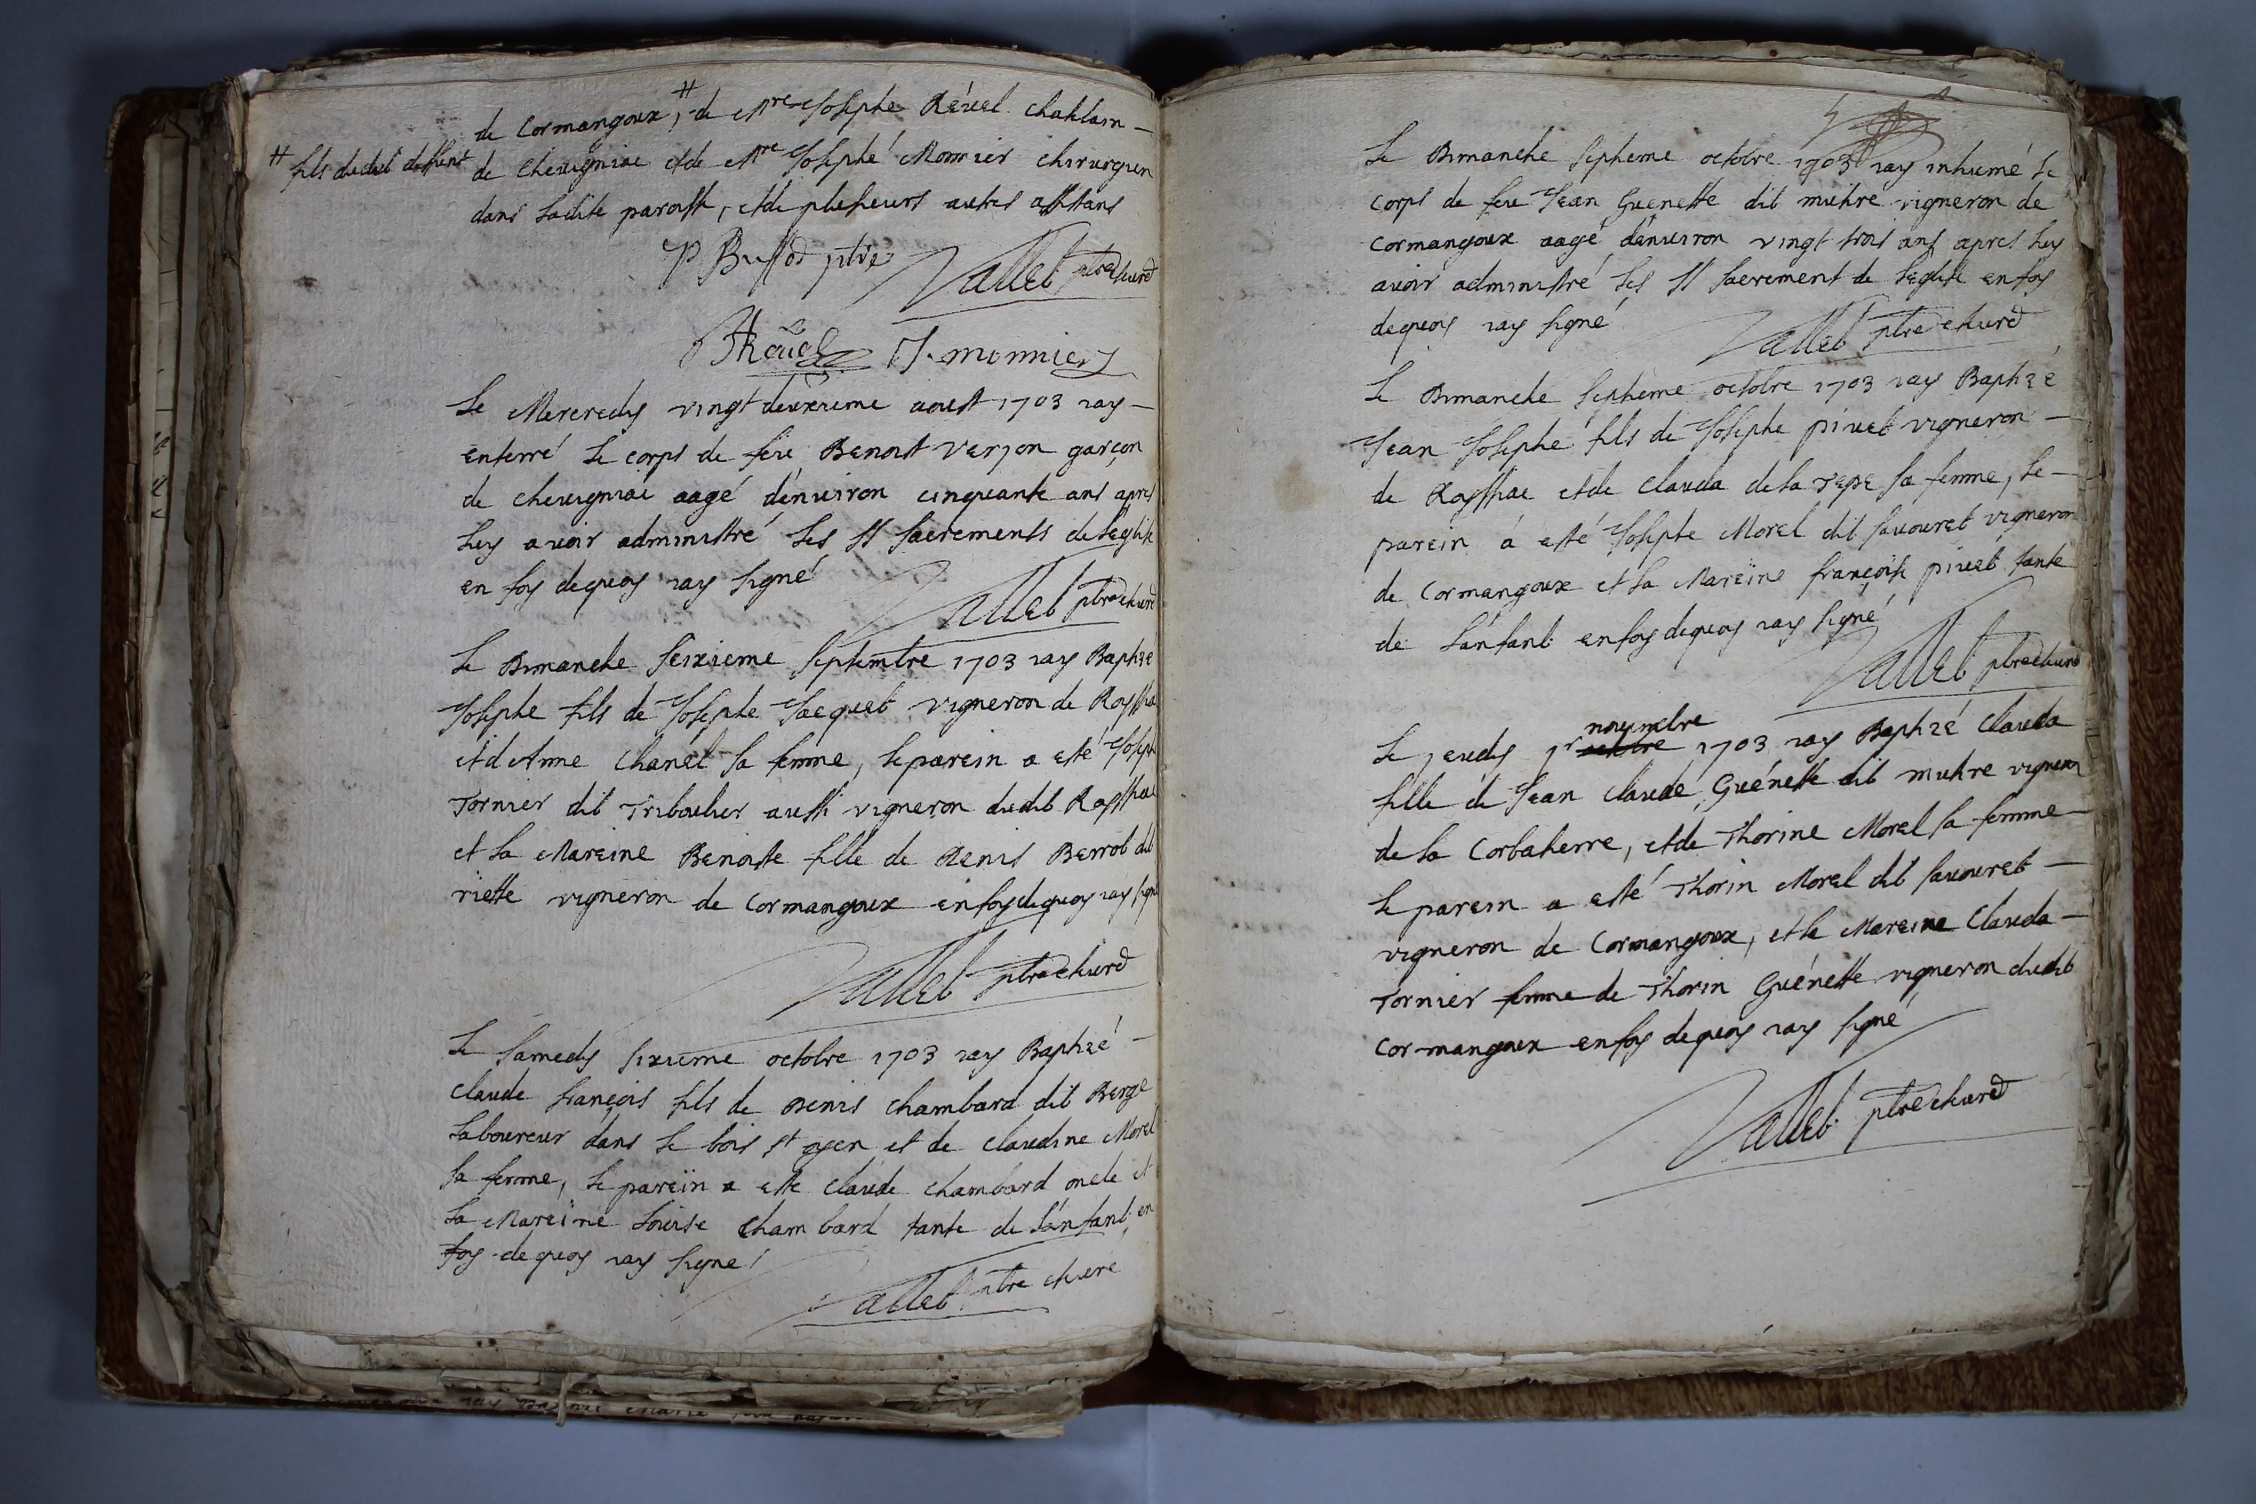 de Cormangoux,# de Mre Josephe Réuel chaplain
# fils dudit deffunt
de cheuigniac et de Mre Josephé Monnier chirurgien
dans ladite paroisse, et de plusieurs autres assistans
P Buffod ptre
Vallet ptre & curé
Réuel J. monnier
Le Mercredy vingt deuxieme aoust 1703 iay
enterré le corps de feu Benoist Verjon garçon
de cheuigniac aagé d'enuiron cinquante ans apres
luy auoir administré les SS sacrements de l'eglise
en foy dequoy iay signé
Vallet ptre & curé
Le Dimanche seixieme septembre 1703 iay Baptizé
Josephe fils de Josephe Jacquet vigneron de Royssia
et d'Anne Chanel sa femme, le parein a esté Joseph
Tornier dit Triboulier aussi vigneron dudit Royssiac
et la Mareine Benoiste fille de Denis Berrod dit
riette vigneron de Cormangoux en foy dequoy iay signé
Vallet ptre & curé
Le samedy sixieme octobre 1703 iay Baptizé
Claude françois fils de Denis chambard dit Berge
laboureur dans le bois st oyen et de Claudine Morel
sa femme, le parein a esté Claude chambard oncle et
la Mareine Louise chambard tante de l'enfant, en
foy dequoy iay signé
Vallet ptre & curé
Le Dimanche septieme octobre 1703 iay inhumé le
corps de feu Jean Guenette dit mitre vigneron de
Cormangoux aagé d'enuiron vingt trois ans apres luy
auoir administré les SS sacrement de l'eglise en foy
dequoy iay signé
Vallet ptre & curé
Le Dimanche septieme octobre 1703 iay Baptizé
Jean Josephe fils de Josephe piuet vigneron
de Royssiac et de Clauda de la sa femme, le
parein á esté Josephe Morel dit sauouret vigneron
de Cormangoux et la Mareine françoise piuet tante
de l'enfant en foy dequoy iay signé
Vallet ptre & curé
nouembre
Le jeudy 1r octobre 1703 iay Baptizé Clauda
fille de Jean Claude Guénette dit mitre vigneron
de la Corbaterre, et de Thorine Morel sa femme
le parein a esté Thorin Morel dit sauouret
vigneron de Cormangoux, et la Mareine Clauda
Tornier femme de Thorin Guénette vigneron dudit
Cormangoux en foy dequoy iay signé
Vallet ptre & curé